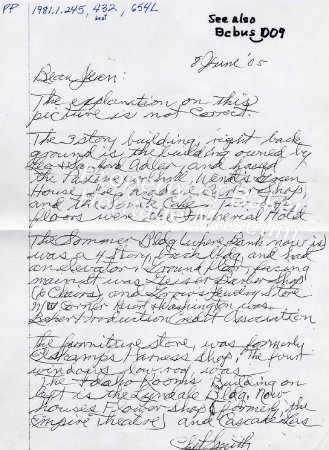 PP 1981.1.245, 432, 654L
See also
Bcbus D09
8 June '05
Dear Jean:
The explanation on this
picture is not correct.
The 3 story building, right back
ground is the building owned by
and Adler and housed
the Pastime
House, Hoerr and Adler Barber shop,
and the Cafe.
floors were the Imperial Hotel
The Sommer Bldg (where bank now is
was a 4 story brick bldg and had
an elevator. Ground Floor, facing
main st was Geiser Barber Shop
(6 Chairs) and Jewelry Store
N/W Corner Main & Washington was
Baker Production Credit Association
the furniture store, was formerly
Elskamps Harness Shop, the four
windows row, was
The Idaho Rooms. Building on
left is the Lyndale Bldg. Now
houses Flower shop (formerly the
Empire Theatre) and Cascade Gas
Chet Smith